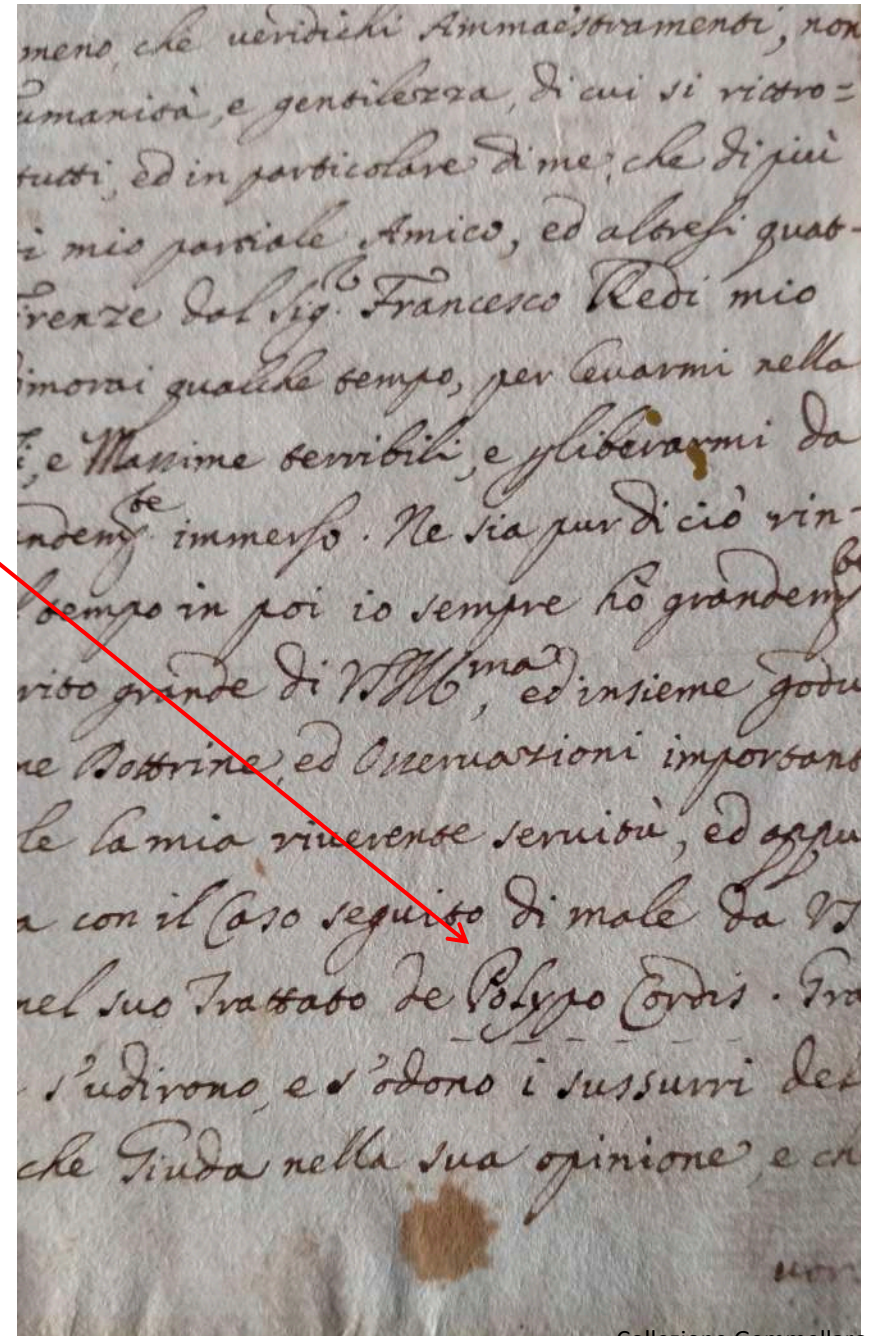 meno, che veridichi Ammaestramenti, non
umanità, e gentilezza, di cui si ritro=
tutti, ed in particolare di me, che di più
i mio parziale Amico, ed altresì quat-
renze dal Sig.r Francesco Redi mio
imorai qualche tempo, per levarmi nella
i, e Massime terribili, e liberarmi da
ndem.te immerso. Ne sia pur di ciò rin-
l tempo in poi io sempre hò grandem.te
rito grande di ma, ed insieme godu
ne Dottrine, ed Osservazioni important
le la mia riverente servitù, ed appu
a con il Caso seguito di male da VS
nel suo Trattato de Polypo Cordis. Gra
s'udirono, e s'odono i sussurri del
che Giuda nella sua opinione, e ch
non